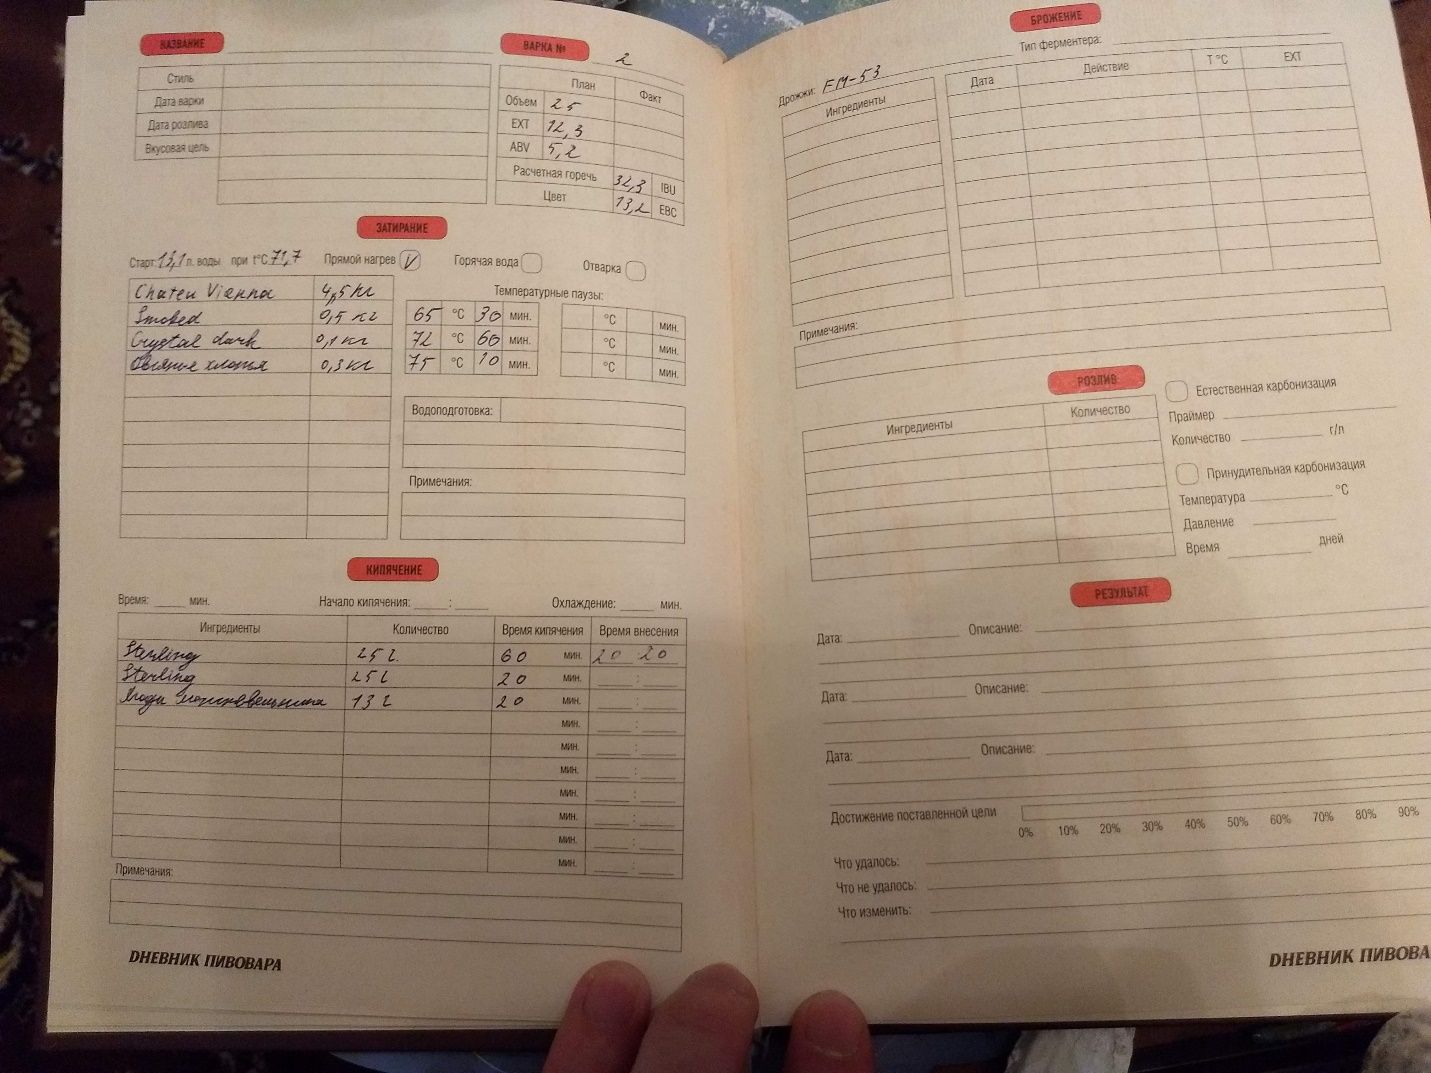 НАЗВАНИЕ
Стиль
Дата варки
Дата розлива
Вкусовая цель
ВАРКА № 2
План Факт
Объем 25
EXT 12,3
ABV 5,2
Расчетная горечь 32,3 IBU
Цвет 13,2 EBC
ЗАТИРАНИЕ
Старт 13,1 л. воды при t°C 71,7 Прямой нагрев V Горячая вода Отварка
Chateu Vienna 4,5 кг
Smoked 0,5 кг
Crystal dark 0,1 кг
Овсяные хлопья 0,3 кг
Температурные паузы:
65 °C 30 мин. °C мин.
72 °C 60 мин. °C мин.
75 °C 10 мин. °C мин.
Водоподготовка:
Примечания:
КИПЯЧЕНИЕ
Время: ____ мин. Начало кипячения: ____ : ____ Охлаждение: ____ мин.
Ингредиенты Количество Время кипячения Время внесения
Sterling 25 г. 60 мин. 20 20
Sterling 25 г 20 мин. :
Ягоды можжевельника 13 г 20 мин. :
мин. :
мин. :
мин. :
мин. :
мин. :
мин. :
мин. :
Примечания:
DНЕВНИК ПИВОВАРА
БРОЖЕНИЕ
Дрожжи: FM-53 Тип ферментера:
Ингредиенты
Дата Действие T °C EXT
Примечания:
РОЗЛИВ
Ингредиенты Количество
Естественная карбонизация
Праймер
Количество ____ г/л
Принудительная карбонизация
Температура ____ °C
Давление
Время ____ дней
РЕЗУЛЬТАТ
Дата: Описание:
Дата: Описание:
Дата: Описание:
Достижение поставленной цели
0% 10% 20% 30% 40% 50% 60% 70% 80% 90%
Что удалось:
Что не удалось:
Что изменить:
DНЕВНИК ПИВОВА